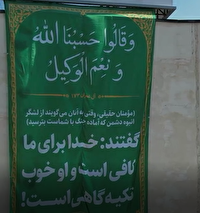 وَقَالُوا حَسْبُنَا اللَّهُ
وَ نِعْمَ الْوَكِيلُ
(مؤمنان حقیقی، وقتی به آنان می‌گویند از لشگر
انبوه دشمن که آماده جنگ با شماست بترسید)
گفتند: خدا برای ما
کافی است و او خوب
تکیه گاهی است!